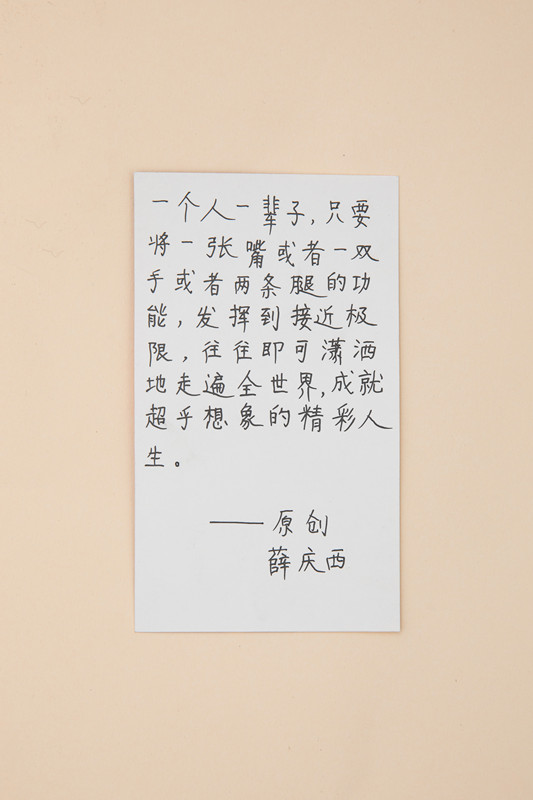 一个人一辈子,只要
将一张嘴或者一双
手或者两条腿的功
能,发挥到接近极
限,往往即可潇洒
地走遍全世界,成就
超乎想象的精彩人
生。
——原创
薛庆西